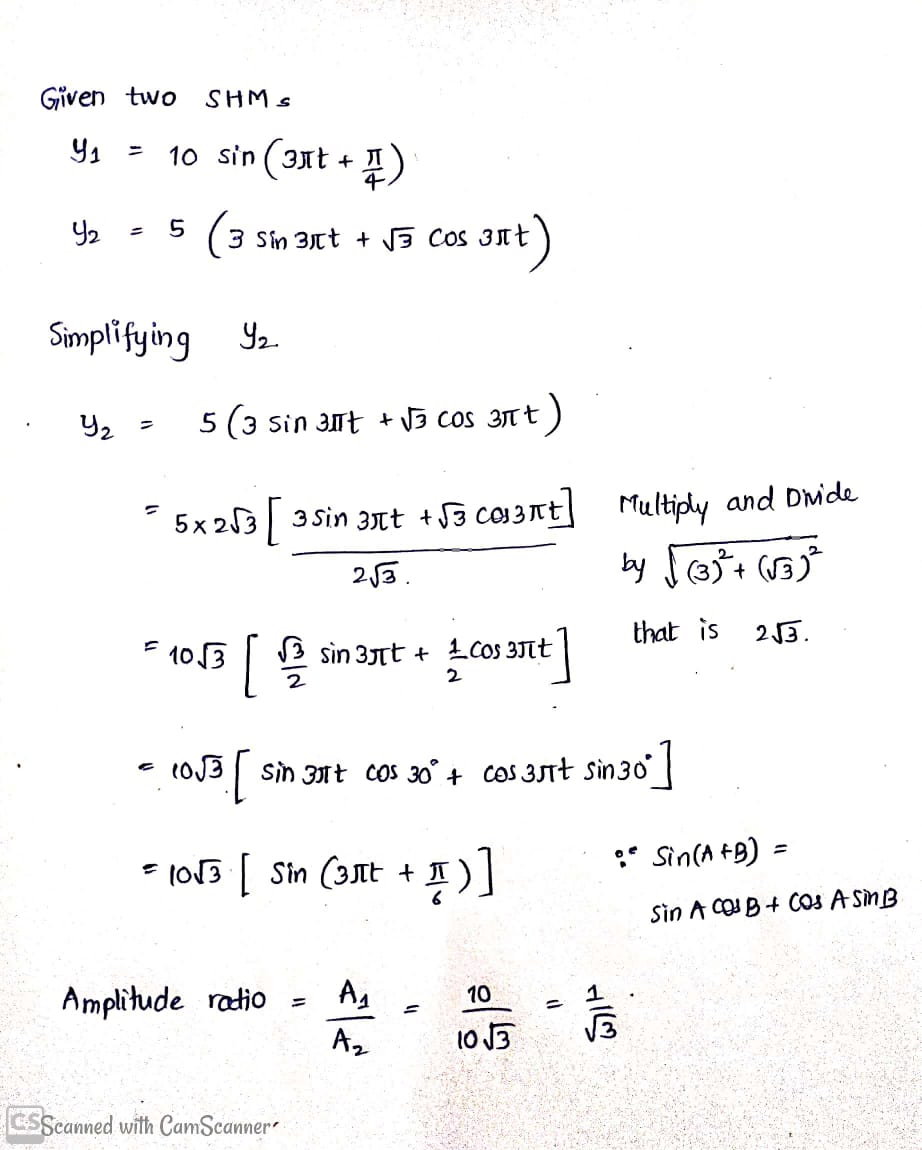 Given two SHMs
y₁ = 10 sin (3πt + π/4)
y₂ = 5 (3 sin 3πt + √3 cos 3πt)
Simplifying y₂
y₂ = 5 (3 sin 3πt + √3 cos 3πt)
= 5×2√3 [3 sin 3πt + √3 cos 3πt] / 2√3. Multiply and Divide
by √((3)² + (√3)²)
that is 2√3.
= 10√3 [√3/2 sin 3πt + 1/2 cos 3πt]
= 10√3 [sin 3πt cos 30° + cos 3πt sin 30°]
= 10√3 [Sin (3πt + π/6)]
∵ Sin(A+B) =
sin A cos B + cos A sin B
Amplitude ratio = A₁/A₂ = 10/10√3 = 1/√3.
CS Scanned with CamScanner